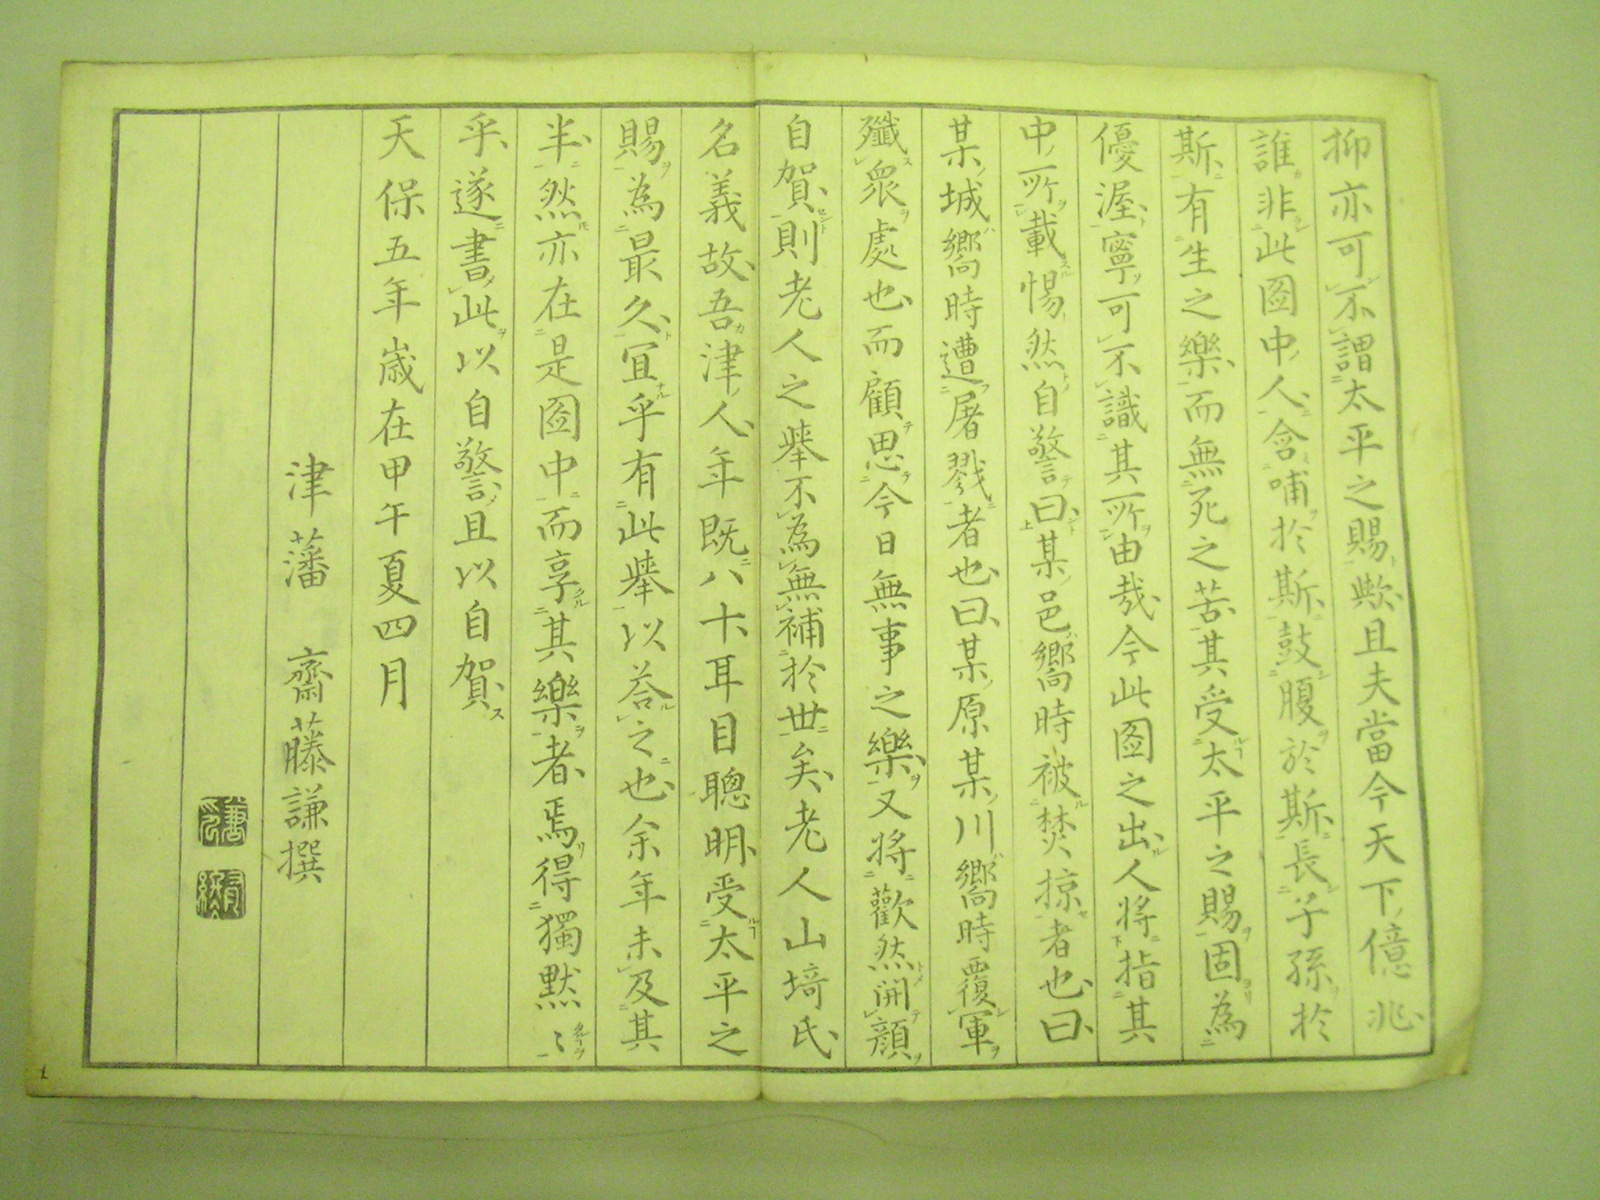 抑亦可不謂太平之賜歟且夫當今天下億兆
誰非此圖中人含哺於斯鼓腹於斯長子孫於
斯有生之樂而無死之苦其受太平之賜固為
優渥寧可不識其所由哉今此图之出人將指其
中所載惕然自警曰某邑嚮時被焚掠者也曰
某城嚮時遭屠戮者也曰某原某川嚮時覆軍
殲衆處也而顧思今日無事之樂又將歡然開顔
自賀則老人之舉不為無補於世矣老人山埼氏
名義故吾津人年既八十耳目聰明受太平之
賜為最久宜乎有此舉以荅之也余年未及其
半然亦在是圖中而享其樂者焉得獨黙〻
乎遂書此以自警且以自賀
天保五年歳在甲午夏四月
津藩 齋藤謙撰